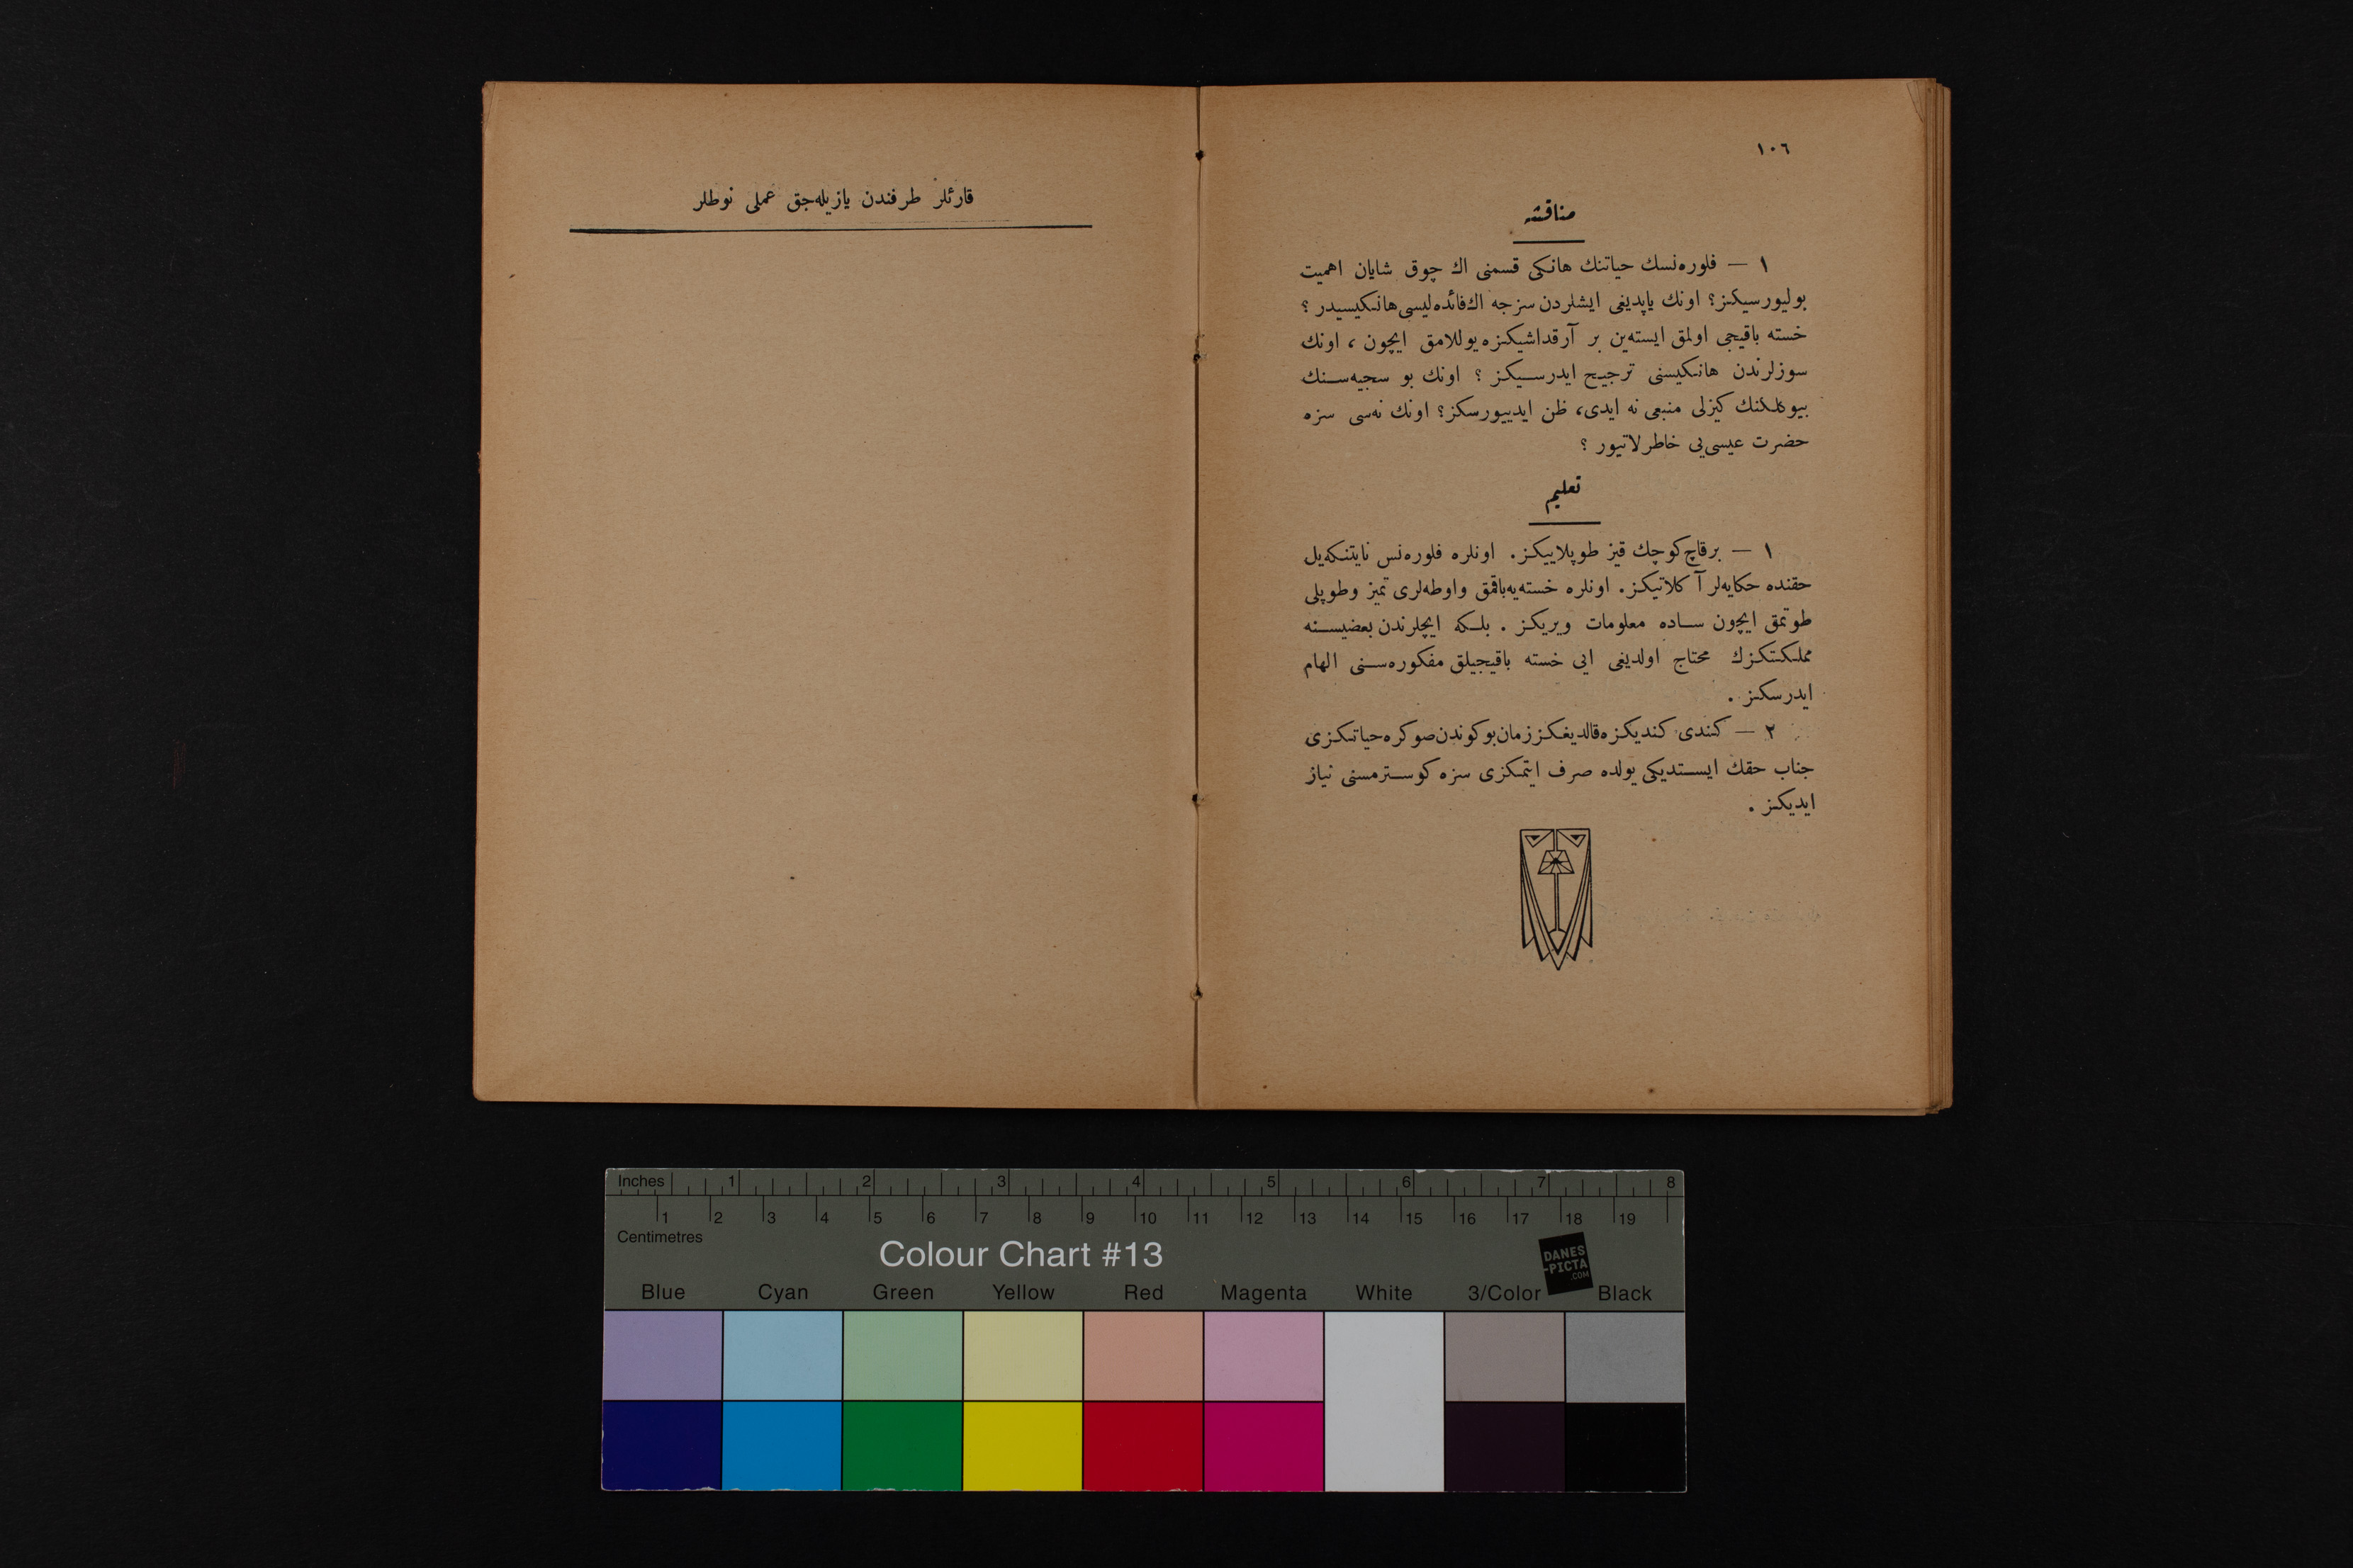 ١٠٦
مناقشه
١ — فلوره‌نسك حیاتنك هانكی قسمنی اك چوق شایان اهمیت
بولیورسیكز؟ اونك یاپدیغی ایشلردن سزجه اك‌فائده‌لیسی هانكیسیدر ؟
خسته باقیجی اولمق ایسته‌ین بر آرقداشیكزه یوللامق ایچون ، اونك
سوزلرندن هانكیسنی ترجیح ایدرسیكز ؟ اونك بو سجیه‌سنك
بیوكلكنك كیزلی منبعی نه ایدی، ظن ایدییورسكز؟ اونك نه‌سی سزه
حضرت عیسی‌یی خاطرلاتیور ؟
تعلیم
١ — برقاچ كوچك قیز طوپلاییكز. اونلره فلوره‌نس نایتنكه‌یل
حقنده حكایه‌لر آكلاتیكز. اونلره خسته‌یه‌باقمق واوطه‌لری تمیز وطوپلی
طوتمق ایچون ساده معلومات ویریكز . بلكه ایچلرندن بعضیسنه
مملكتكزك محتاج اولدیغی ایی خسته باقیجیلق مفكوره‌سنی الهام
ایدرسكز .
٢ — كندی كندیكزه قالدیغكز زمان بوكوندن صوكره حیاتكزی
جناب حقك ایستدیكی یولده صرف ایتمكزی سزه كوسترمسنی نیاز
ایدیكز .
قارئلر طرفندن یازیله‌جق عملی نوطلر
Inches 1 2 3 4 5 6 7 8
1 2 3 4 5 6 7 8 9 10 11 12 13 14 15 16 17 18 19
Centimetres
Colour Chart #13
DANES
-PICTA
.COM
Blue Cyan Green Yellow Red Magenta White 3/Color Black